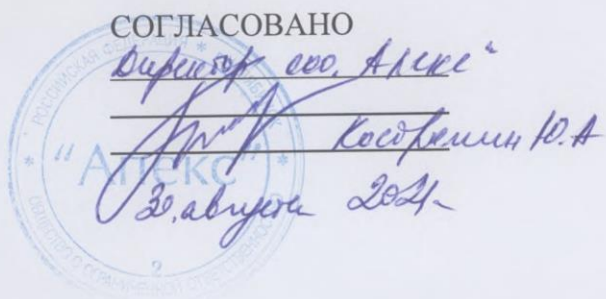 СОГЛАСОВАНО
Директор ООО "Апекс"
Костремин Ю.А
30 августа 2021
РОССИЙСКАЯ ФЕДЕРАЦИЯ
"Апекс"
ОБЩЕСТВО С ОГРАНИЧЕННОЙ ОТВЕТСТВЕННОСТЬЮ
2